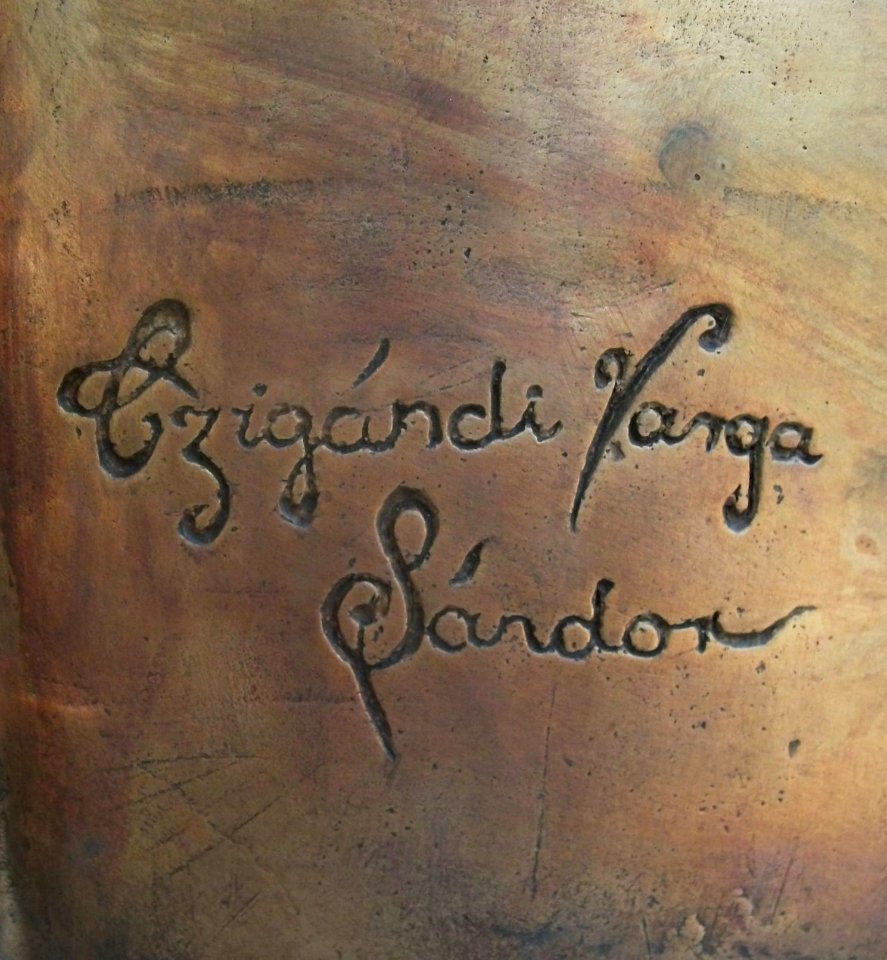 Czigándi Varga
Sándor